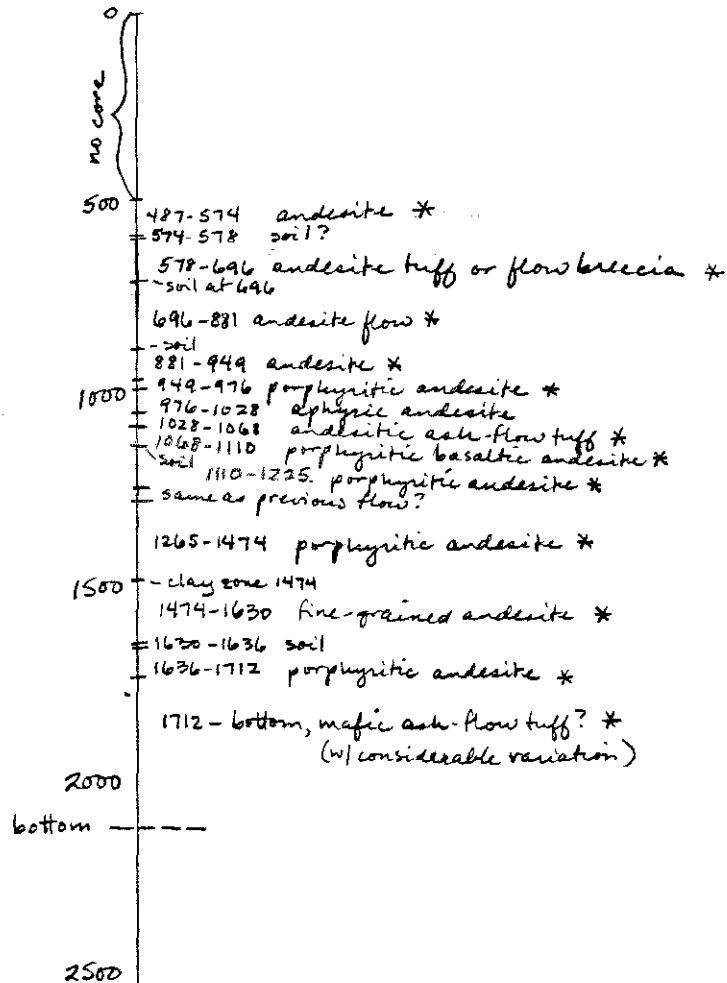 0
no core
500
487-574 andesite *
574-578 soil?
578-696 andesite tuff or flow breccia *
- soil at 696
696-881 andesite flow *
- soil
881-949 andesite *
949-976 porphyritic andesite *
1000
976-1028 aphyric andesite
1028-1068 andesitic ash-flow tuff *
1068-1110 porphyritic basaltic andesite *
soil
1110-1225. porphyritic andesite *
same as previous flow?
1265-1474 porphyritic andesite *
1500
- clay zone 1474
1474-1630 fine-grained andesite *
1630-1636 soil
1636-1712 porphyritic andesite *
1712 - bottom, mafic ash-flow tuff? *
(w/ considerable variation)
2000
bottom
2500